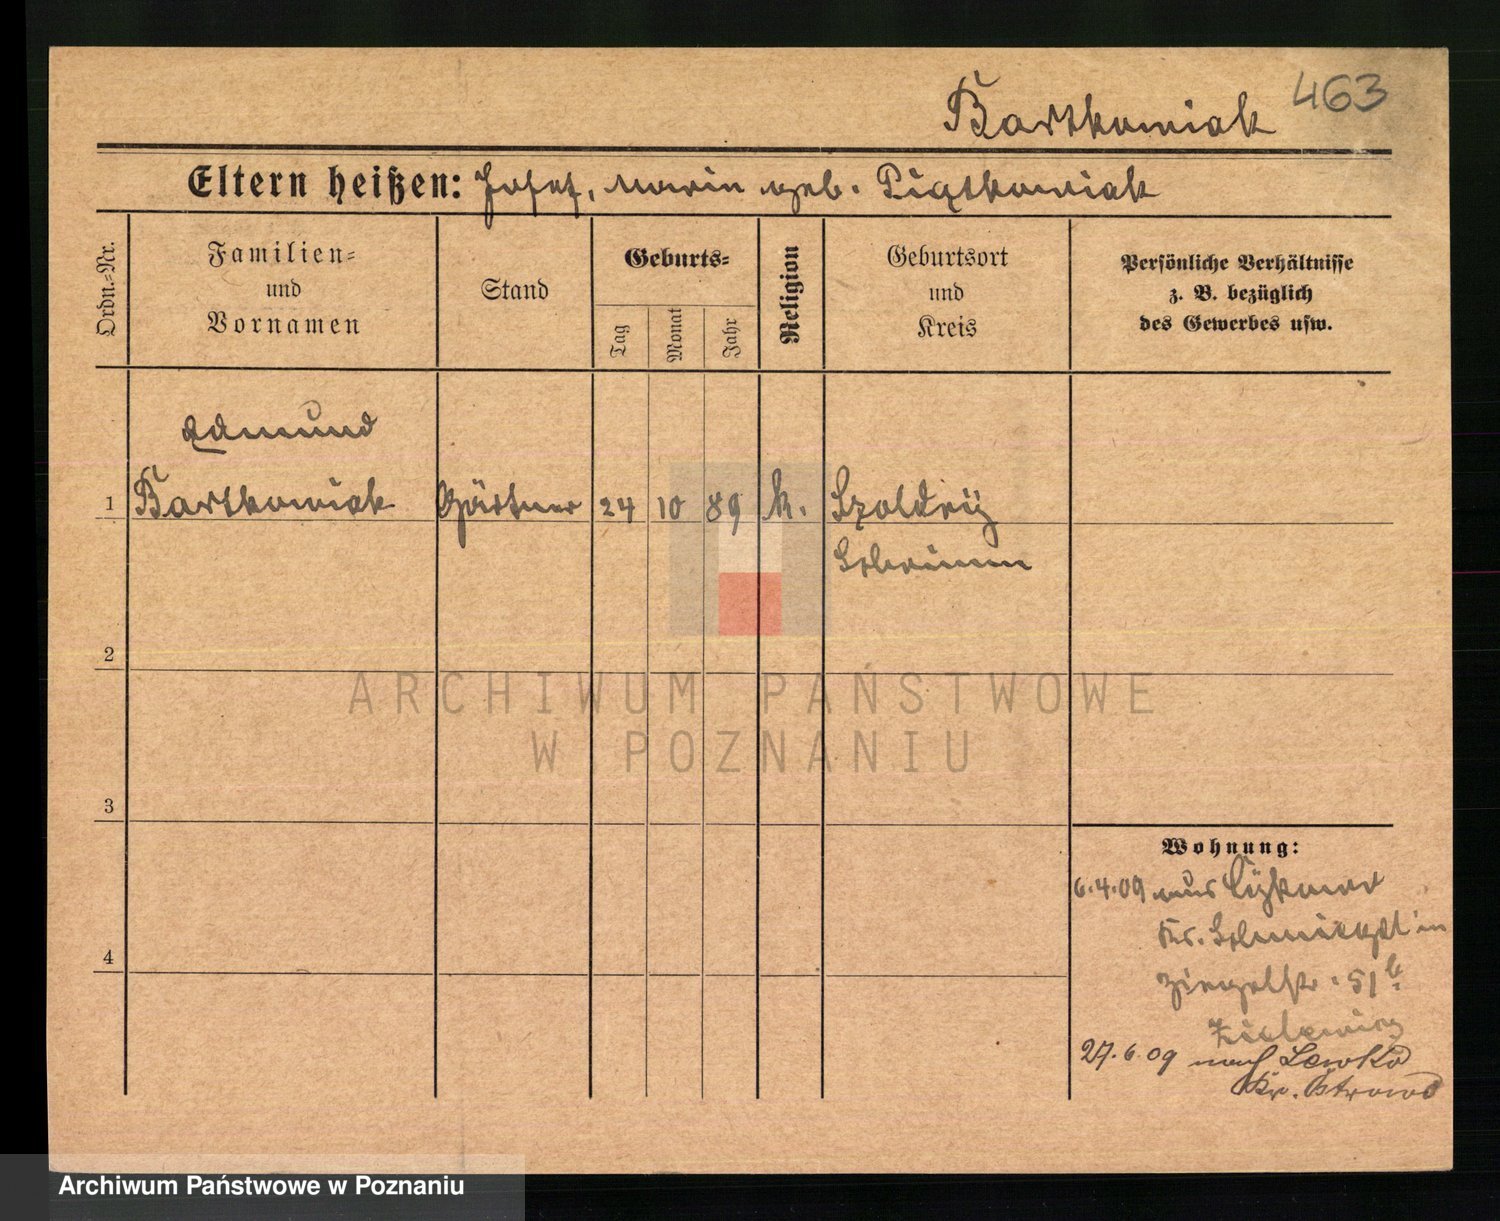 Bartkowiak 463
Eltern heißen: Josef, Maria geb. Piątkowiak
Ordn.-Nr.
Familien- und Vornamen
Stand
Geburts-
Tag
Monat
Jahr
Religion
Geburtsort und Kreis
Persönliche Verhältnisse
z. B. bezüglich
des Gewerbes usw.
Edmund
1 Bartkowiak Gärtner 24 10 89 k. Szoldry
Schrimm
2
3
4
Wohnung:
6.4.09 aus
Kr. Schmiegel in
Ziegelstr. 51b
27.6.09 nach Lewkow
Kr. Ostrowo
ARCHIWUM PAŃSTWOWE
W POZNANIU
Archiwum Państwowe w Poznaniu